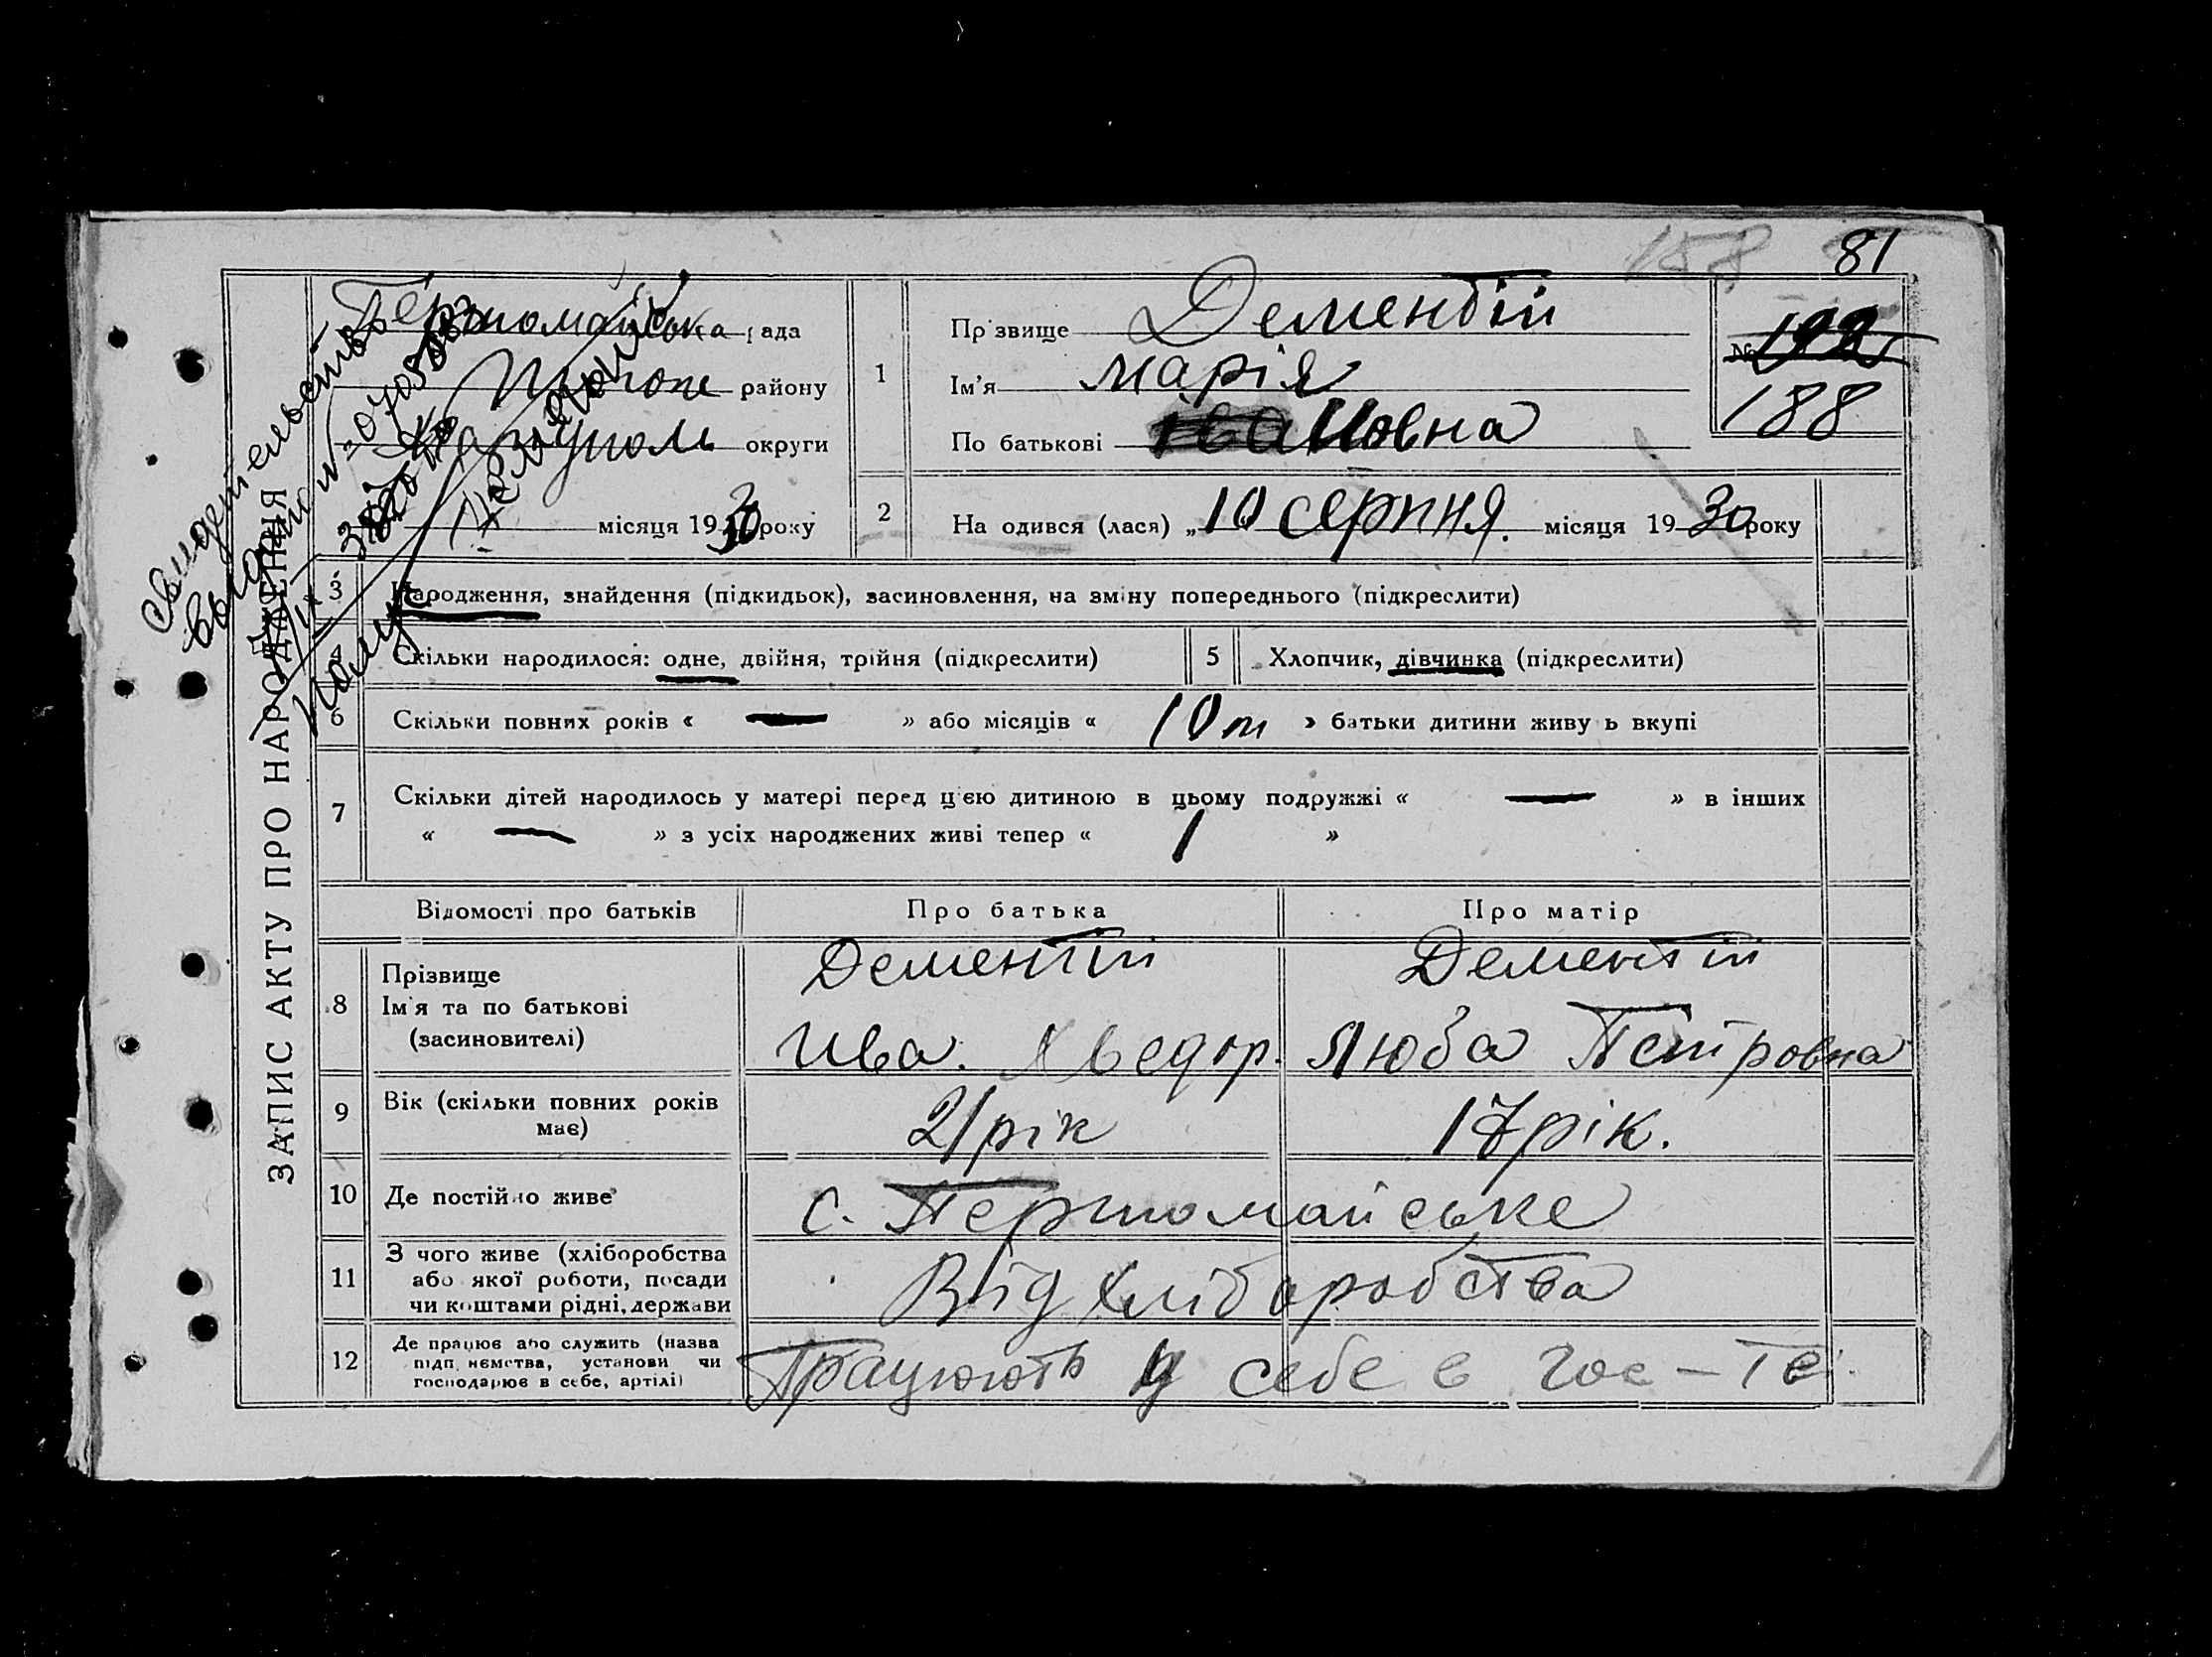 158 81
ЗАПИС АКТУ ПРО НАРОДЖЕННЯ
Свидетельство
выдано
Першомайська рада
району
Маріуполь округи
місяця 1930 року
1
Прізвище Дементій
Ім'я Марія
По батькові Івановна
№ 188
2 На одився (лася) „10 серпня. місяця 1930 року
3 Народження, знайдення (підкидьок), засиновлення, на зміну попереднього (підкреслити)
4 Скільки народилося: одне, двійня, трійня (підкреслити) 5 Хлопчик, дівчинка (підкреслити)
6 Скільки повних років « — » або місяців « 10 м » батьки дитини живу ь вкупі
7 Скільки дітей народилось у матері перед цією дитиною в цьому подружжі « — » в інших
« — » з усіх народжених живі тепер « 1 »
Відомості про батьків Про батька Про матір
8 Прізвище Дементій Дементій
Ім'я та по батькові
(засиновителі) Ива. Хведор. Люба Петровна
9 Вік (скільки повних років має) 21 рік 17 рік.
10 Де постійно живе с. Першомайське
11 З чого живе (хліборобства
або якої роботи, посади
чи коштами рідні, держави Від хліборобства
12 Де працює або служить (назва
підп. немства, установи чи
господарює в себе, артілі) Працюють у себе в гос-ві.